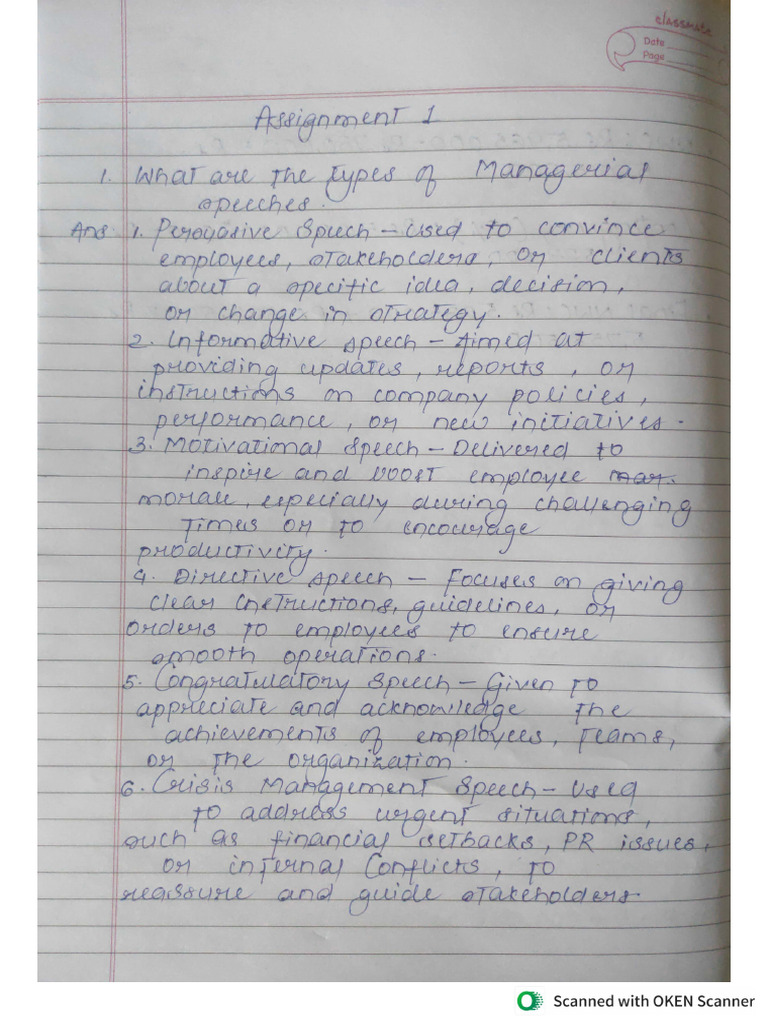 classmate
Date
Page
Assignment 1
1. What are the types of Managerial
speeches.
Ans 1. Persuasive Speech - Used to convince
employees, stakeholders, or clients
about a specific idea, decision,
or change in strategy.
2. Informative speech - Aimed at
providing updates, reports, or
instructions on company policies,
performance, or new initiatives.
3. Motivational Speech - Delivered to
inspire and boost employee
morale, especially during challenging
times or to encourage
productivity.
4. Directive speech - Focuses on giving
clear instructions, guidelines, or
orders to employees to ensure
smooth operations.
5. Congratulatory Speech - Given to
appreciate and acknowledge the
achievements of employees, teams,
or the organization.
6. Crisis Management Speech - Used
to address urgent situations,
such as financial setbacks, PR issues,
or internal conflicts, to
reassure and guide stakeholders.
Scanned with OKEN Scanner